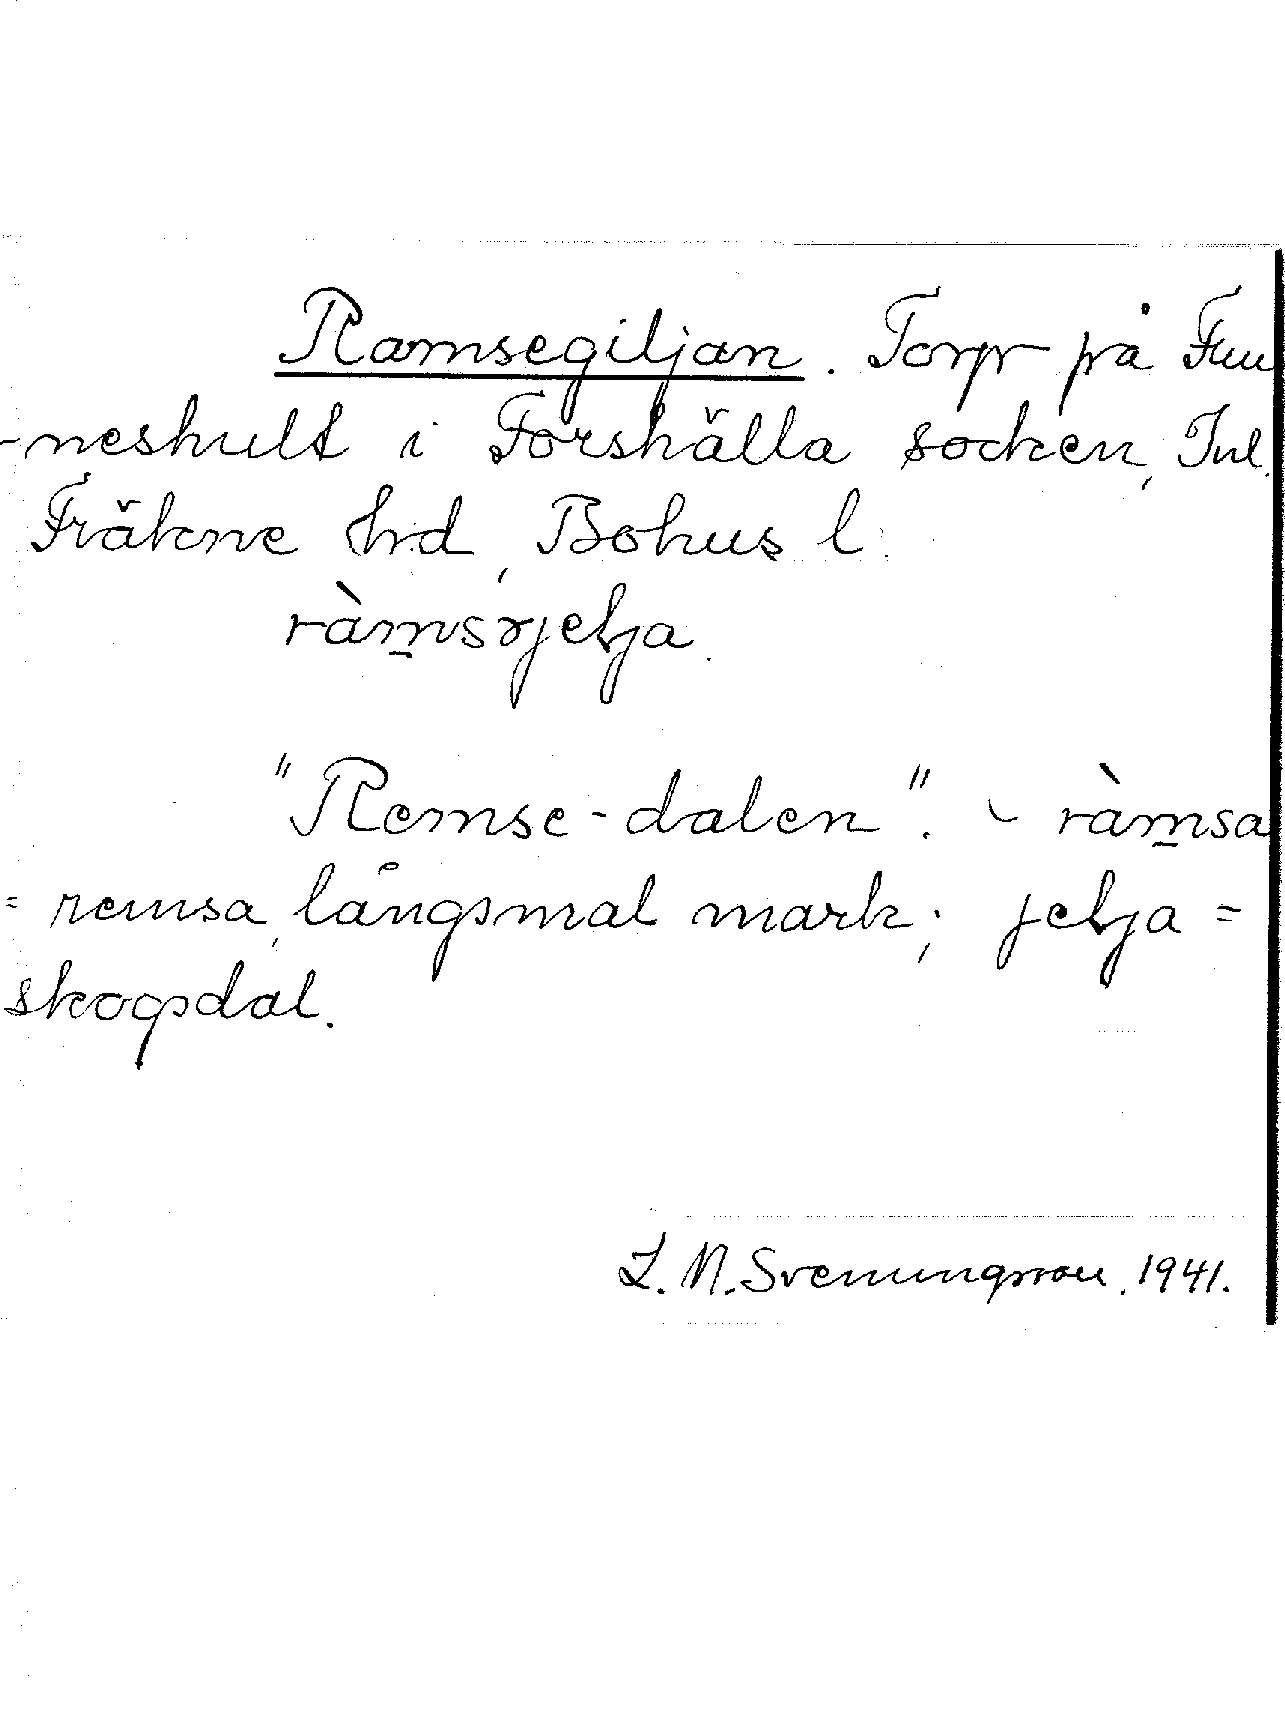 Ramsegiljan. Torp på Fun
-neshult i Forshälla socken, Inl.
Fräkne hrd, Bohus l.
ràmsɤjelja.
"Remse-dalen". - ràmsa
= remsa, långsmal mark; jelja =
skogsdal.
L. N. Svenungsson. 1941.